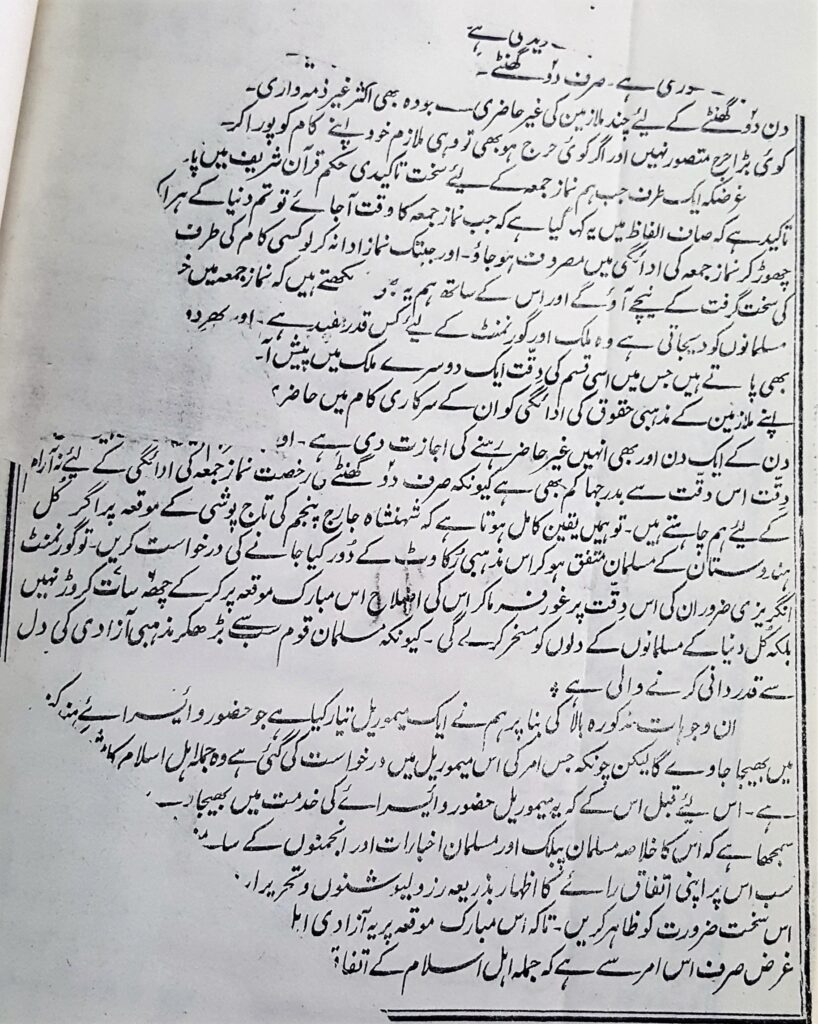 دیدی ہے
وری ہے ۔ صرف دو گھنٹے ۔
دن دو گھنٹے کے لیے چند ملازمین کی غیر حاضری بودہ بھی اکثر غیر ذمہ واری ۔
کوئی بڑا حرج متصور نہیں اور اگر کوئی حرج ہو بھی تو وہی ملازم خود اپنے کام کو پورا کر ۔
غرضکہ ایک طرف جب ہم نماز جمعہ کے لیے سخت تاکیدی حکم قرآن شریف میں پا ۔
تاکید ہے کہ صاف الفاظ میں یہ کہا گیا ہے کہ جب نماز جمعہ کا وقت آجائے تو تم دنیا کے ہر
چھوڑ کر نماز جمعہ کی ادائگی میں مصروف ہو جاؤ ۔ اور جبتک نماز ادا نہ کر لو کسی کام کی طرف
کی سخت گرفت کے نیچے آؤ گے اور اس کے ساتھ ہم یہ دیکھتے ہیں کہ نماز جمعہ میں
مسلمانوں کو دیجاتی ہے وہ ملک اور گورنمنٹ کے لیے کس قدر مفید ہے ۔ اور پھر
بھی پاتے ہیں جس میں اسی قسم کی دقت ایک دوسرے ملک میں پیش آ ۔
اپنے ملازمین کے مذہبی حقوق کی ادائگی کو ان کے سرکاری کام میں حاضر
دن کے ایک دن اور بھی انہیں غیر حاضر رہنے کی اجازت دی ہے ۔ او
دقت اس دقت سے بدرجہا کم بھی ہے کیونکہ صرف دو گھنٹے کی رخصت نماز جمعہ کی ادائگی کے لیے
کے لیے ہم چاہتے ہیں ۔ تو ہمیں یقین کامل ہوتا ہے کہ شہنشاہ جارج پنجم کی تاج پوشی کے موقعہ پر اگر کل
ہندوستان کے مسلمان متفق ہو کر اس مذہبی رکاوٹ کے دور کیا جانے کی درخواست کریں ۔ تو گورنمنٹ
انگریزی ضرور ان کی اس دقت پر غور فرما کر اس کی اصلاح اس مبارک موقعہ پر کر کے چھ سات کروڑ نہیں
بلکہ کل دنیا کے مسلمانوں کے دلوں کو مسخر کر لے گی ۔ کیونکہ مسلمان قوم سب سے بڑھکر مذہبی آزادی کی دل
سے قدردانی کرنے والی ہے ؞
ان وجوہات مذکورہ بالا کی بنا پر ہم نے ایک میموریل تیار کیا ہے جو حضور وائسرائے ہند
میں بھیجا جاوے گا لیکن چونکہ جس امر کی اس میموریل میں درخواست کی گئی ہے وہ جملہ اہل اسلام کا
ہے ۔ اس لیے قبل اس کے کہ یہ میموریل حضور وائسرائے کی خدمت میں بھیجا
سمجھا ہے کہ اس کا خلاصہ مسلمان پبلک اور مسلمان اخبارات اور انجمنوں کے
سب اس پر اپنی اتفاق رائے کا اظہار بذریعہ رزولیوشنوں و تحریر
اس سخت ضرورت کو ظاہر کریں ۔ تاکہ اس مبارک موقعہ پر یہ آزادی
غرض صرف اس امر سے ہے کہ جملہ اہل اسلام کے